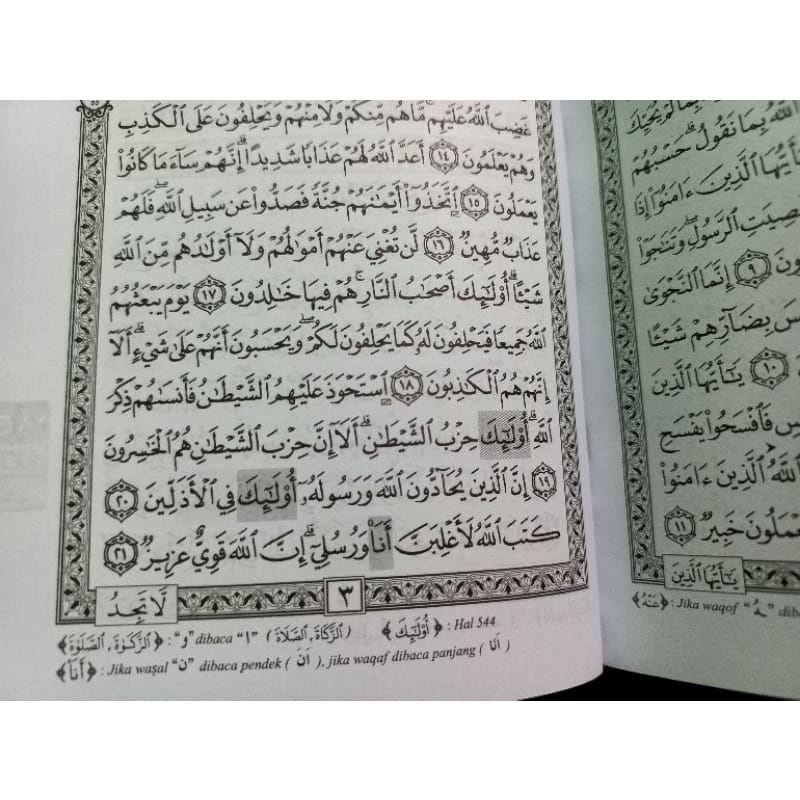 بِمَا لَمْ يُحَيِّكَ
ٱللَّهُ بِمَا نَقُولُ ۚ حَسْبُهُمْ
يَٰٓأَيُّهَا ٱلَّذِينَ ءَامَنُوٓا۟ إِذَا
ٱلرَّسُولِ وَتَنَٰجَوْا۟
٩ إِنَّمَا ٱلنَّجْوَىٰ
بِضَآرِّهِمْ شَيْـًٔا
١٠ يَٰٓأَيُّهَا ٱلَّذِينَ
فَٱفْسَحُوا۟ يَفْسَحِ
ٱللَّهُ ٱلَّذِينَ ءَامَنُوا۟
خَبِيرٌ ١١
يَٰٓأَيُّهَا ٱلَّذِينَ
﴿عَنْهُ﴾ : Jika waqof “ـهُ”
غَضِبَ ٱللَّهُ عَلَيْهِم مَّا هُم مِّنكُمْ وَلَا مِنْهُمْ وَيَحْلِفُونَ عَلَى ٱلْكَذِبِ
وَهُمْ يَعْلَمُونَ ١٤ أَعَدَّ ٱللَّهُ لَهُمْ عَذَابًا شَدِيدًا ۖ إِنَّهُمْ سَآءَ مَا كَانُوا۟
يَعْمَلُونَ ١٥ ٱتَّخَذُوٓا۟ أَيْمَٰنَهُمْ جُنَّةً فَصَدُّوا۟ عَن سَبِيلِ ٱللَّهِ ۖ فَلَهُمْ
عَذَابٌ مُّهِينٌ ١٦ لَّن تُغْنِىَ عَنْهُمْ أَمْوَٰلُهُمْ وَلَآ أَوْلَٰدُهُم مِّنَ ٱللَّهِ
شَيْـًٔا ۚ أُو۟لَٰٓئِكَ أَصْحَٰبُ ٱلنَّارِ ۖ هُمْ فِيهَا خَٰلِدُونَ ١٧ يَوْمَ يَبْعَثُهُمُ
ٱللَّهُ جَمِيعًا فَيَحْلِفُونَ لَهُۥ كَمَا يَحْلِفُونَ لَكُمْ ۖ وَيَحْسَبُونَ أَنَّهُمْ عَلَىٰ شَىْءٍ ۚ أَلَآ
إِنَّهُمْ هُمُ ٱلْكَٰذِبُونَ ١٨ ٱسْتَحْوَذَ عَلَيْهِمُ ٱلشَّيْطَٰنُ فَأَنسَىٰهُمْ ذِكْرَ
ٱللَّهِ ۚ أُو۟لَٰٓئِكَ حِزْبُ ٱلشَّيْطَٰنِ ۚ أَلَآ إِنَّ حِزْبَ ٱلشَّيْطَٰنِ هُمُ ٱلْخَٰسِرُونَ
١٩ إِنَّ ٱلَّذِينَ يُحَآدُّونَ ٱللَّهَ وَرَسُولَهُۥٓ أُو۟لَٰٓئِكَ فِى ٱلْأَذَلِّينَ ٢٠
كَتَبَ ٱللَّهُ لَأَغْلِبَنَّ أَنَا۠ وَرُسُلِىٓ ۚ إِنَّ ٱللَّهَ قَوِىٌّ عَزِيزٌ ٢١
٣
لَا تَجِدُ
﴿ٱلزَّكَوٰةَ, ٱلصَّلَوٰةَ﴾ : “و” dibaca “ا” (ٱلزَّكَاةَ, ٱلصَّلَاةَ) ﴿أُو۟لَٰٓئِكَ﴾ : Hal 544
﴿أَنَا۠﴾ : Jika waṣal “ن” dibaca pendek (اَنَ), jika waqaf dibaca panjang (اَنَا)